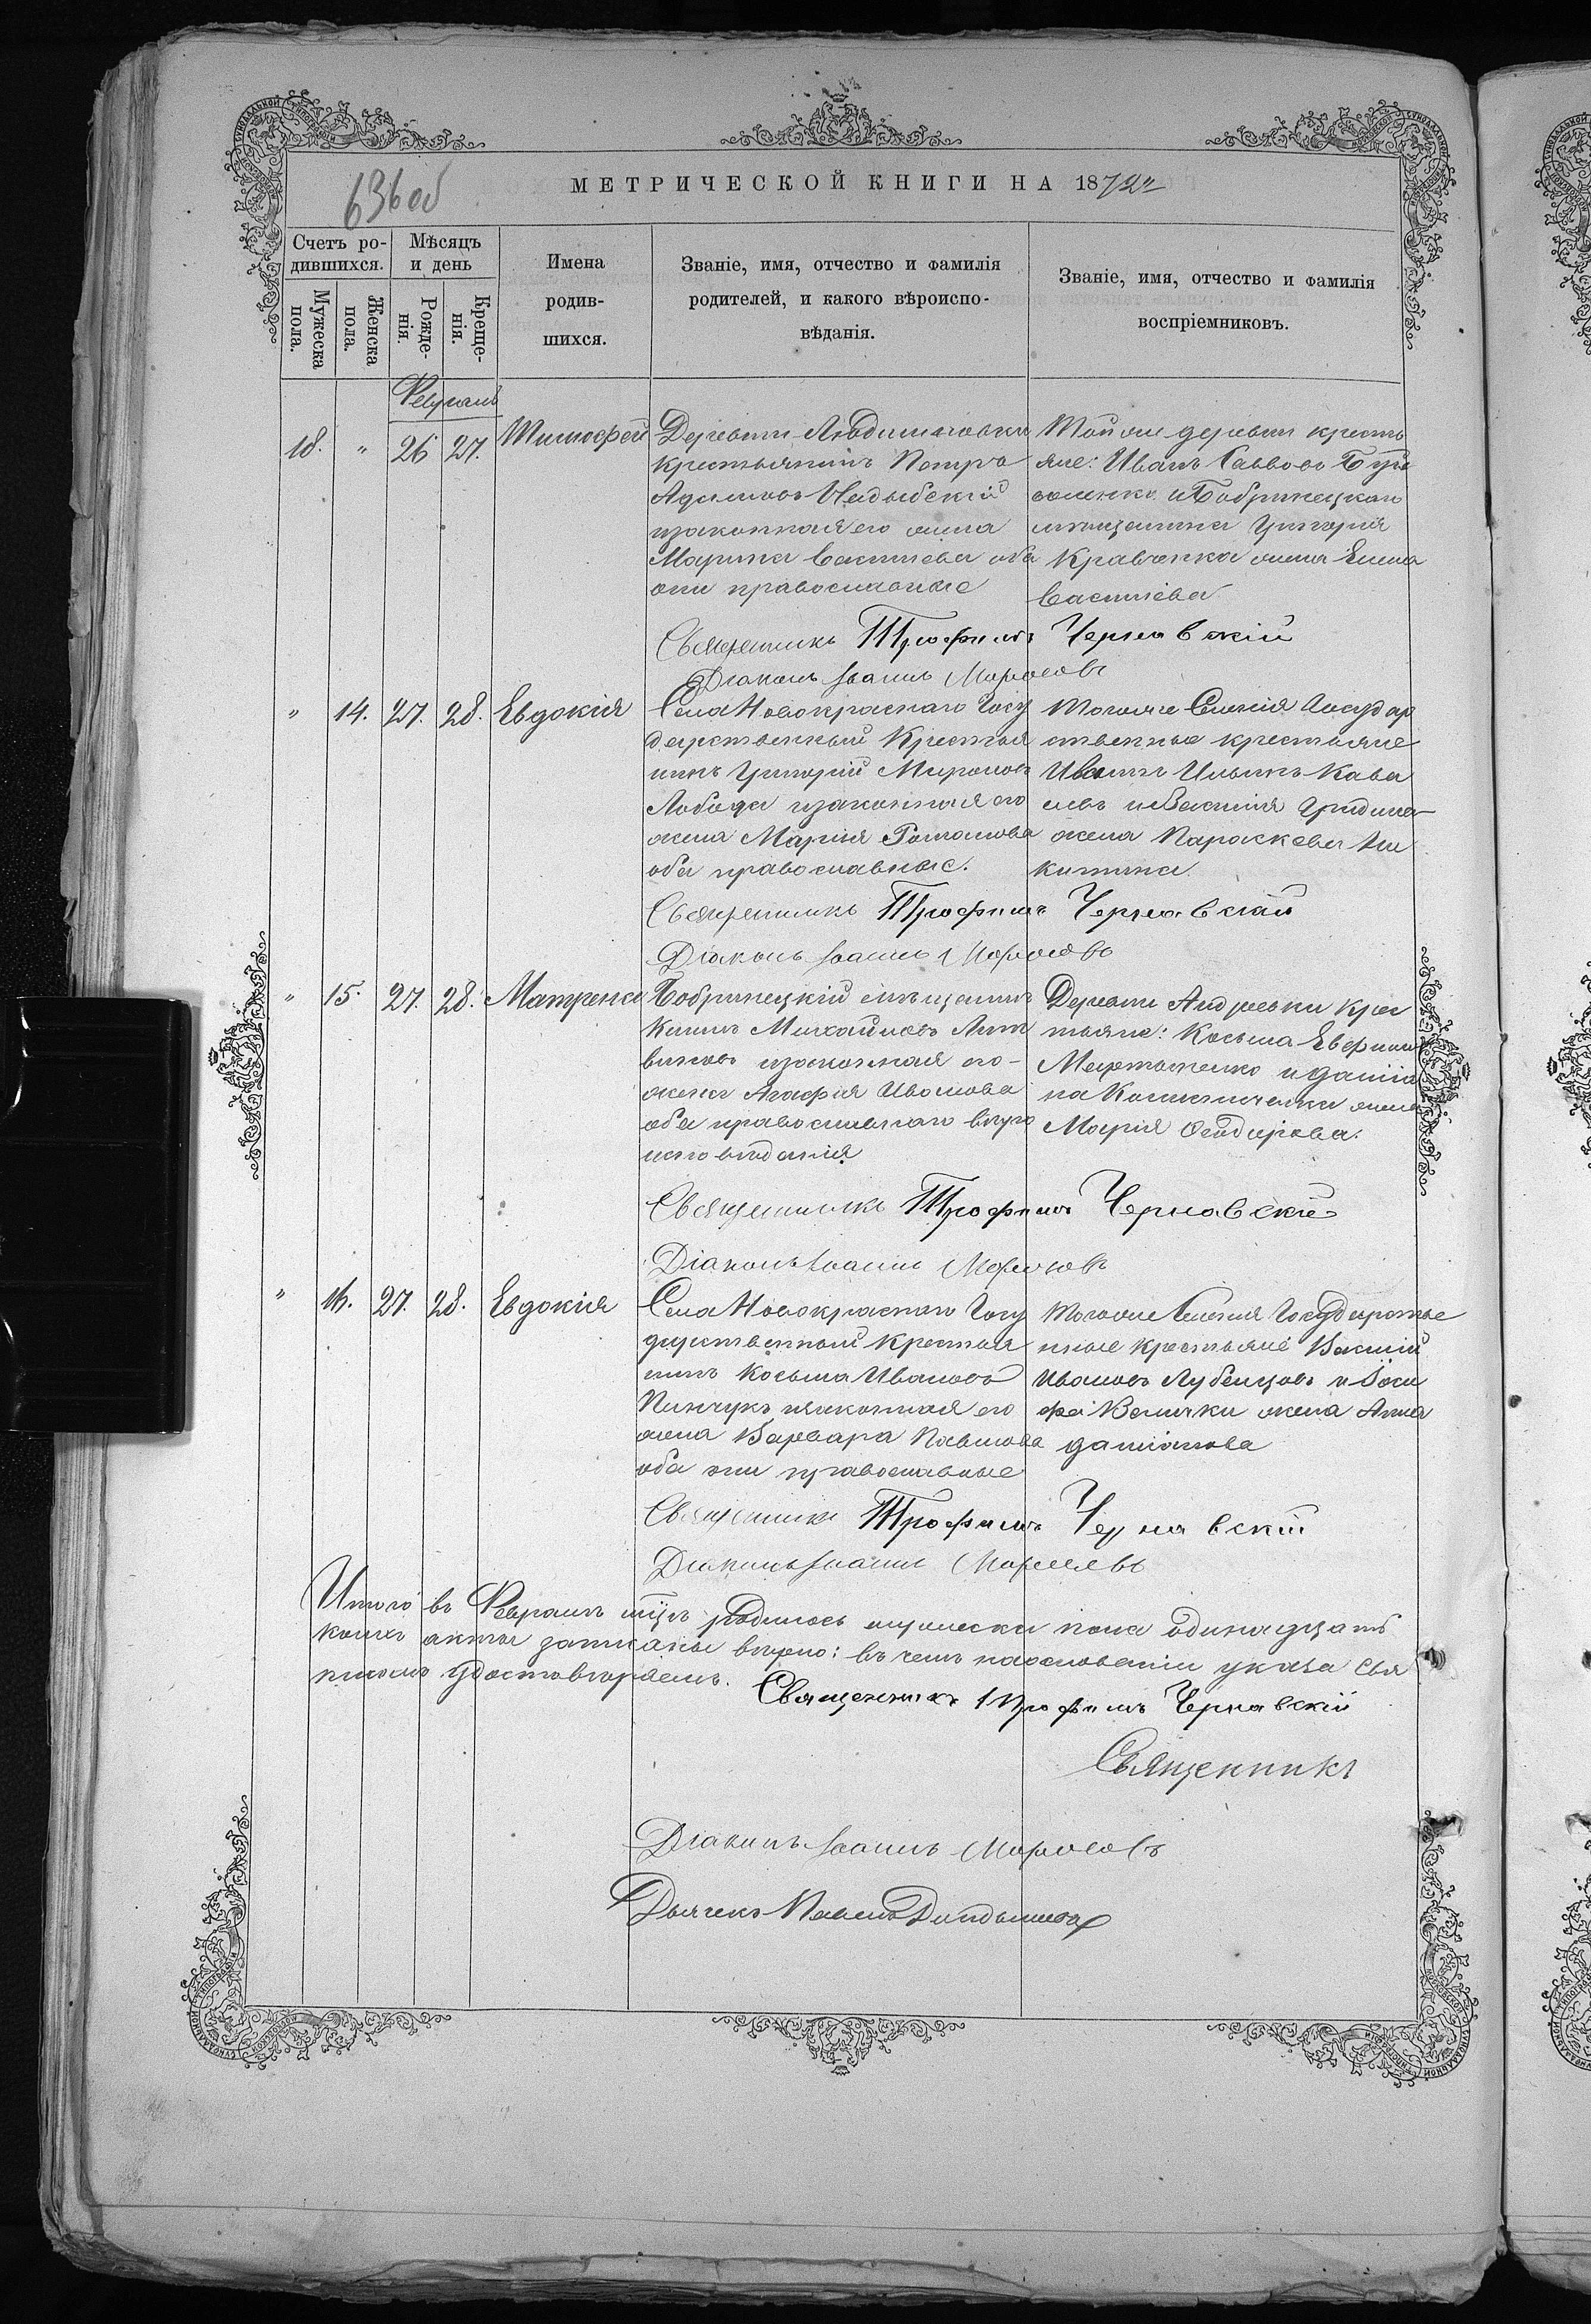 636 об
МЕТРИЧЕСКОЙ КНИГИ НА 1872
Счетъ ро-
дившихся.
Мѣсяцъ
и день
Мужеска
пола.
Женска
пола.
Рожде-
нія.
Креще-
нія.
Имена
родив-
шихся.
Званіе, имя, отчество и фамилія
родителей, и какого вѣроиспо-
вѣданія.
Званіе, имя, отчество и фамилія
воспріемниковъ.
Февраль
18. " 26 27. Тимофей
Деревни
крестьянинъ Петръ
изаконная его жена
Марина Васильева оба
они православные
Тойже деревни кресть
яне: Иванъ Саввовъ
и Бобринецкаго
мѣщанина Григорія
Кравченка жена Елена
Васильева
Священникъ Трофимъ Чернавскій
Діаконъ Іоаннъ Морозовъ
" 14. 27. 28. Евдокія
Села Новокраснаго Госу
дарственный Крестья
нинъ Григорій Мироновъ
Лобода изаконная его
жена Марія Романова
оба православные.
Тогоже Селенія Государ
ственные крестьяне
Иванъ Ильинъ Кова
левъ и Василія
жена Параскева Ни
китина
Священникъ Трофимъ Чернавскій
Діаконъ Іоаннъ Морозовъ
" 15. 27. 28. Матрена
Бобринецкій мѣщанинъ
Михайловъ Лит
виновъ изаконная его
жена Агафія Иванова
оба православнаго вѣро
исповѣданія
Деревни Андреевки крес
тьяне: Косьма
и Даміа
на жена
Марія
Священникъ Трофимъ Чернавскій
Діаконъ Іоаннъ Морозовъ
" 16. 27. 28. Евдокія
Села Новокраснаго Госу
дарственный Крестья
нинъ Косьма Ивановъ
Пинчукъ изаконная его
жена Варвара Павлова
оба они православные
Тогоже Селенія Государстве
нные крестьяне Василій
Ивановъ Лубенцовъ и Іоси
фа Велички жена Анна
Даміанова
Священникъ Трофимъ Чернавскій
Діаконъ Іоаннъ Морозовъ
Итого въ Февралѣ мцѣ родилось мужеска пола одинадцать
коихъ акты записаны вѣрно: въ чемъ наосновании указа Свя
удостовѣряемъ.
Священникъ Трофимъ Чернавскій
Священникъ
Діаконъ Іоаннъ Морозовъ
Дьячекъ Павелъ